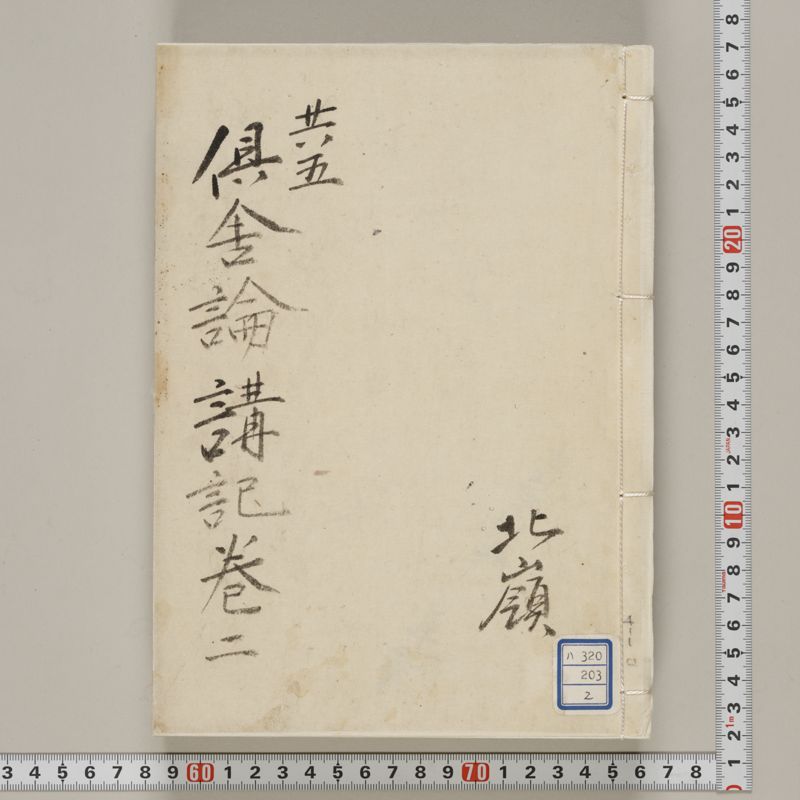 共五
倶舎論講記巻二
北嶺
ハ 320
203
2
8
7
6
5
4
3
2
1
20
9
8
7
6
5
4
3
2
1
10
9
8
7
6
5
4
3
2
1m
1
3 4 5 6 7 8 9 60 1 2 3 4 5 6 7 8 9 70 1 2 3 4 5 6 7 8